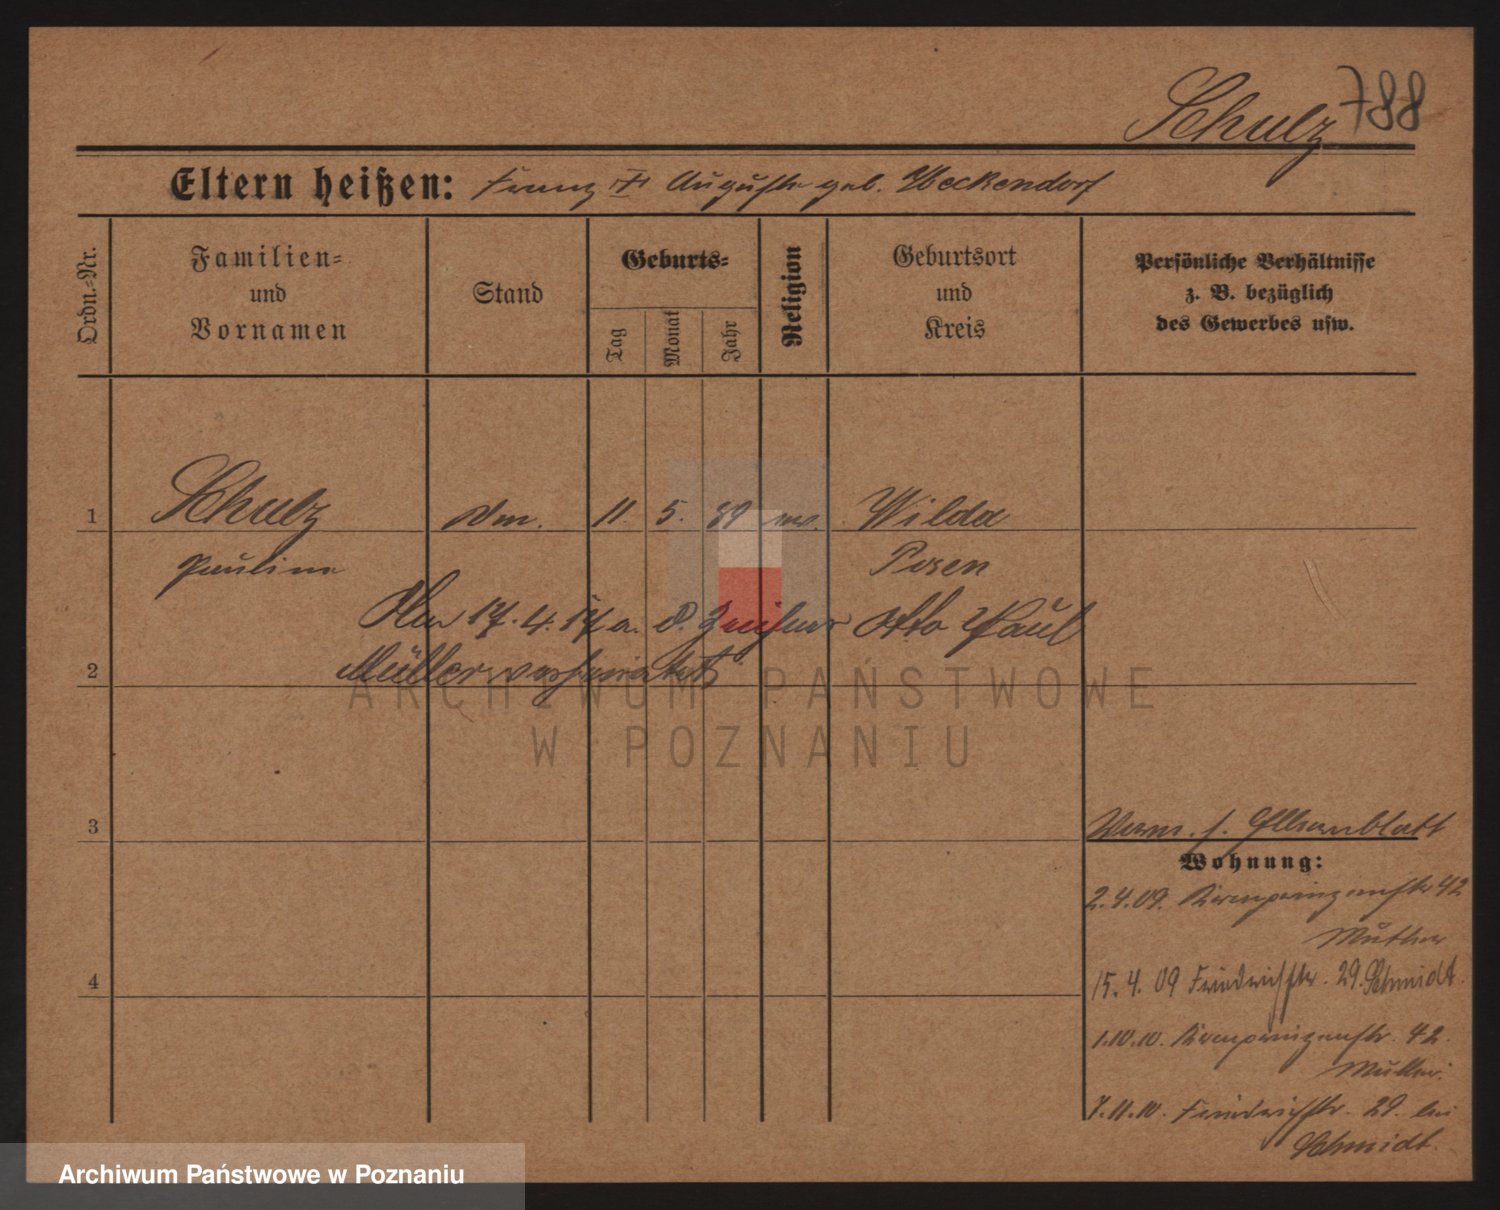 Schulz 788
Eltern heißen: Franz † Auguste geb. Heckendorf
Ordn.-Nr.
Familien-
und
Vornamen
Stand
Geburts-
Tag
Monat
Jahr
Religion
Geburtsort
und
Kreis
Persönliche Verhältnisse
z. B. bezüglich
des Gewerbes usw.
1 Schulz 11. 5. 89 Wilda
Pauline Posen
17. 4. 17 a. d. Otto Paul
2 Müller verheiratet
ARCHIWUM PAŃSTWOWE
W POZNANIU
3 Verm. s. Elternblatt
Wohnung:
2.4.09. Kronprinzenstr 42
Mutter
4 15.4.09 Friedrichstr. 29. Schmidt.
1.10.10. Kronprinzenstr. 42.
7.11.10. Friedrichstr. 29. bei
Schmidt.
Archiwum Państwowe w Poznaniu